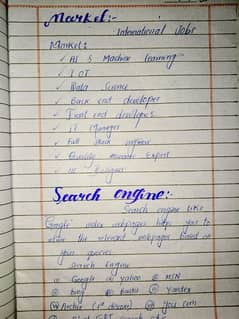 Market:-
International Jobs
Market:
✓ AI & Machine learning
✓ IOT
✓ Data Science
✓ Back end developer
✓ Front end developer
✓ IT Manager
✓ Full stack
✓ Quality expert
✓ UI Designer
Search engine:-
Search engine like
Google index webpages helps you to
the relevant webpages based on
your queries
Search Engine
Google yahoo MSN
bing Yandex
Archie You can
Chat GPT search